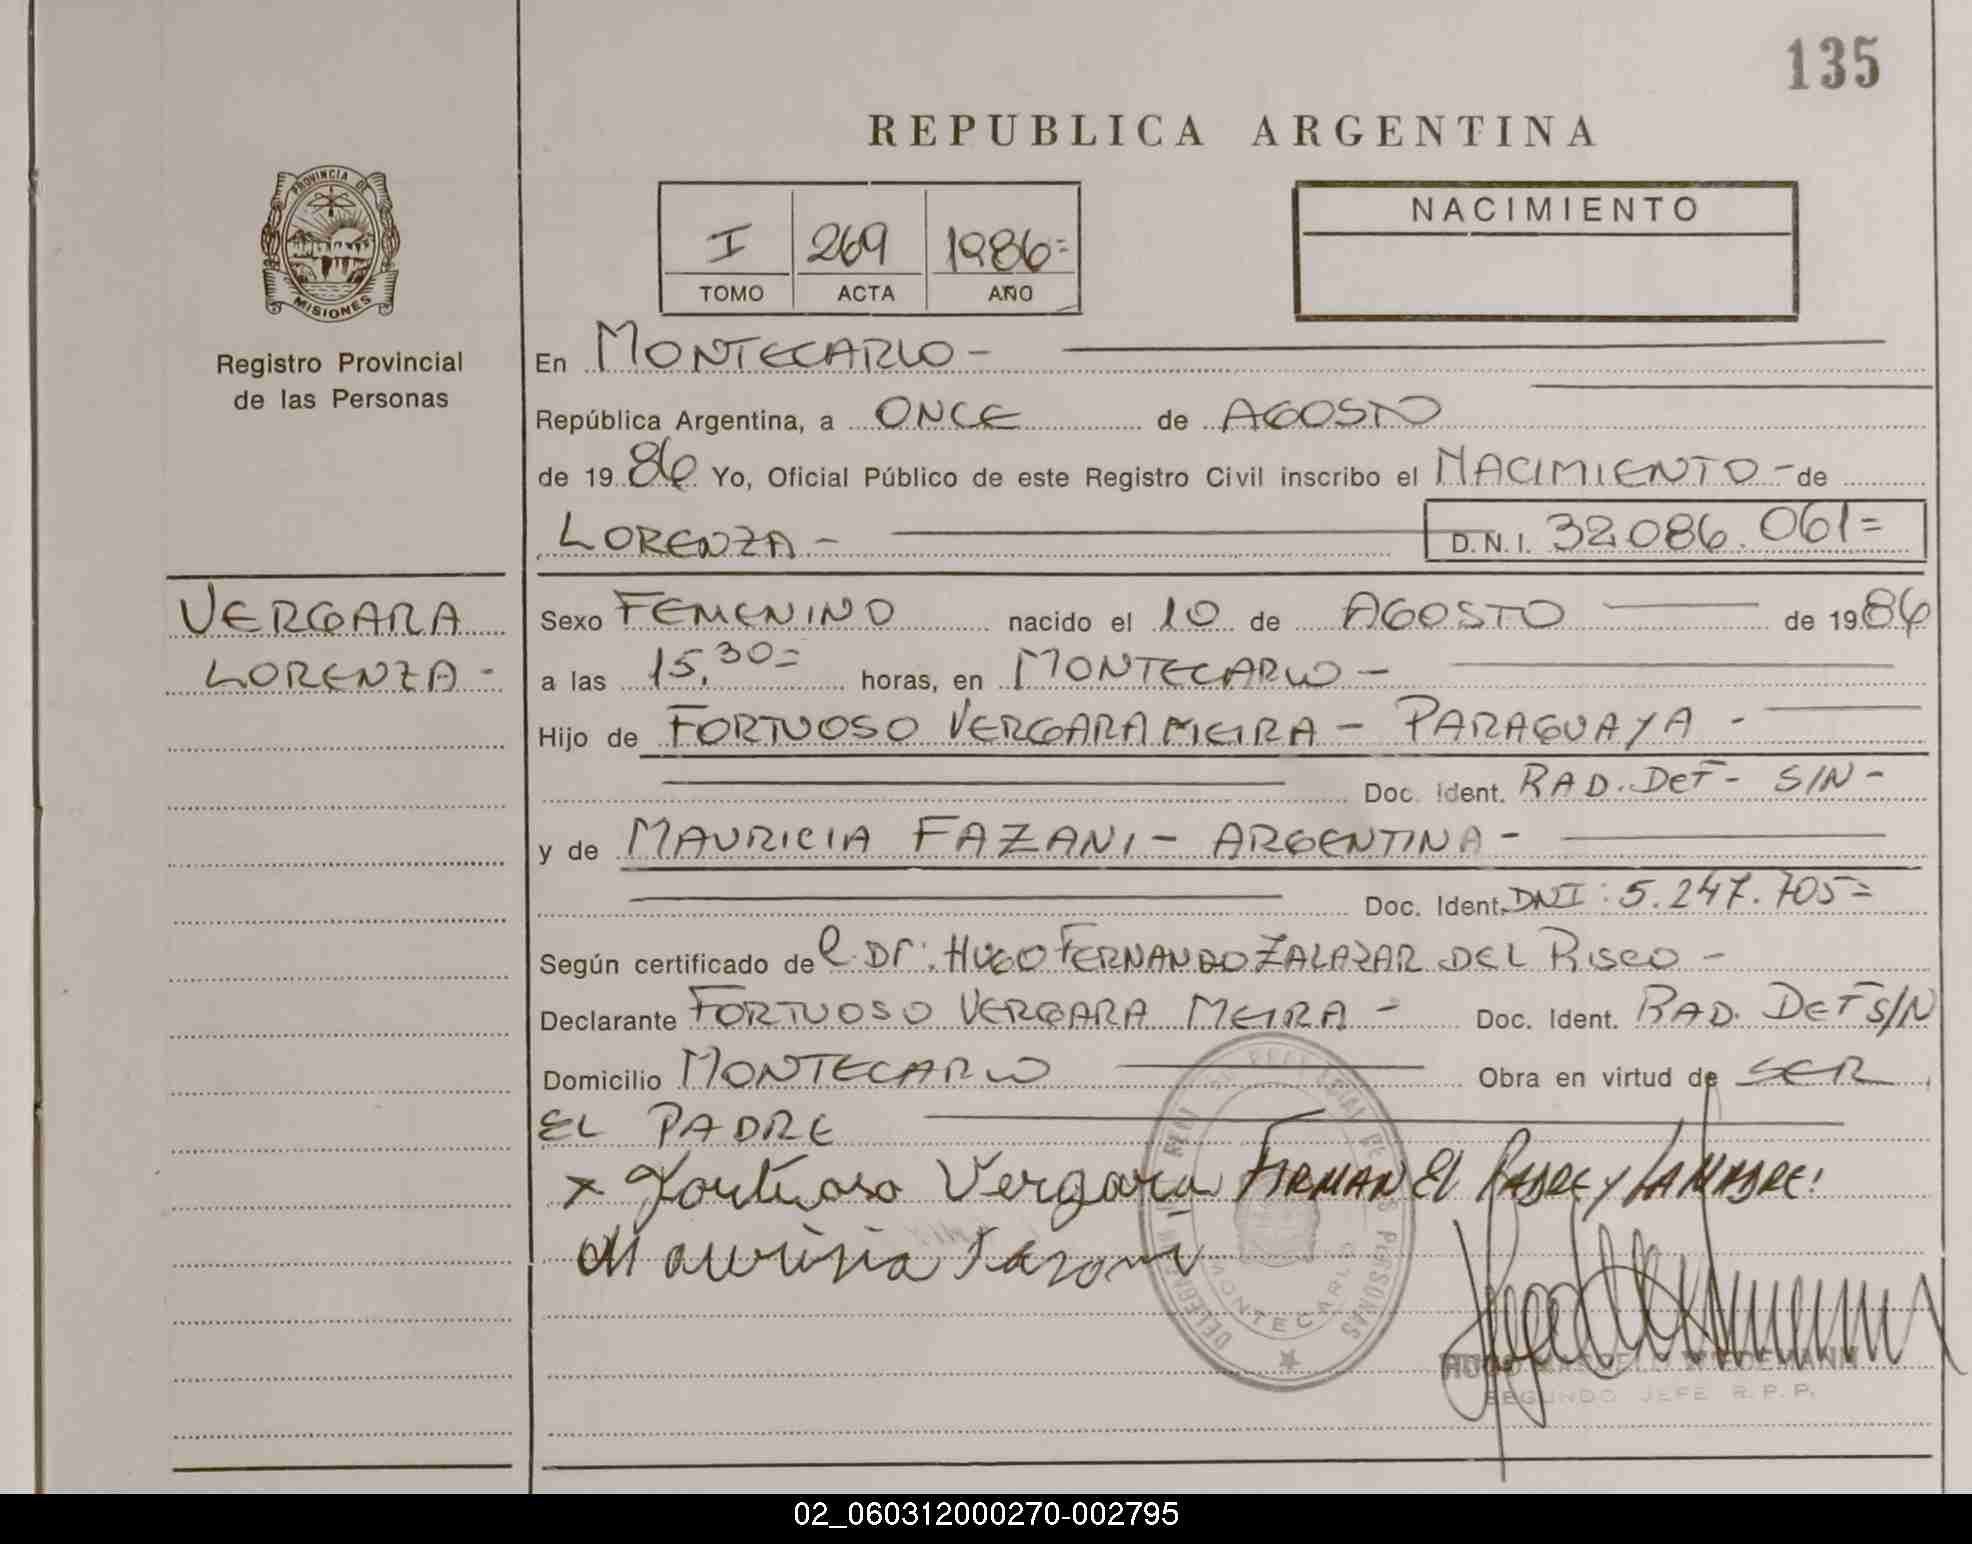 135
REPUBLICA ARGENTINA
PROVINCIA DE
MISIONES
Registro Provincial
de las Personas
I 269 1986=
TOMO ACTA AÑO
NACIMIENTO
En MONTECARLO -
República Argentina, a ONCE de AGOSTO
de 1986 Yo, Oficial Público de este Registro Civil inscribo el NACIMIENTO - de
LORENZA - D.N.I. 32.086.061=
VERGARA
LORENZA -
Sexo FEMENINO nacido el 10 de AGOSTO de 1986
a las 15,30= horas, en MONTECARLO -
Hijo de FORTUOSO VERGARA MEIRA - PARAGUAYA -
Doc. Ident. RAD. DEF - S/N -
y de MAURICIA FAZANI - ARGENTINA -
Doc. Ident. DNI: 5.247.705=
Según certificado del Dr: HUGO FERNANDO ZALAZAR DEL RISCO -
Declarante FORTUOSO VERGARA MEIRA - Doc. Ident. RAD. DEF S/N
Domicilio MONTECARLO Obra en virtud de SER
EL PADRE
x Fortuoso Vergara FIRMAN EL PADRE Y LA MADRE!
Mauricia Fazani
MONTECARLO
HUGO WIEDEMANN
SEGUNDO JEFE R.P.P.
02_060312000270-002795